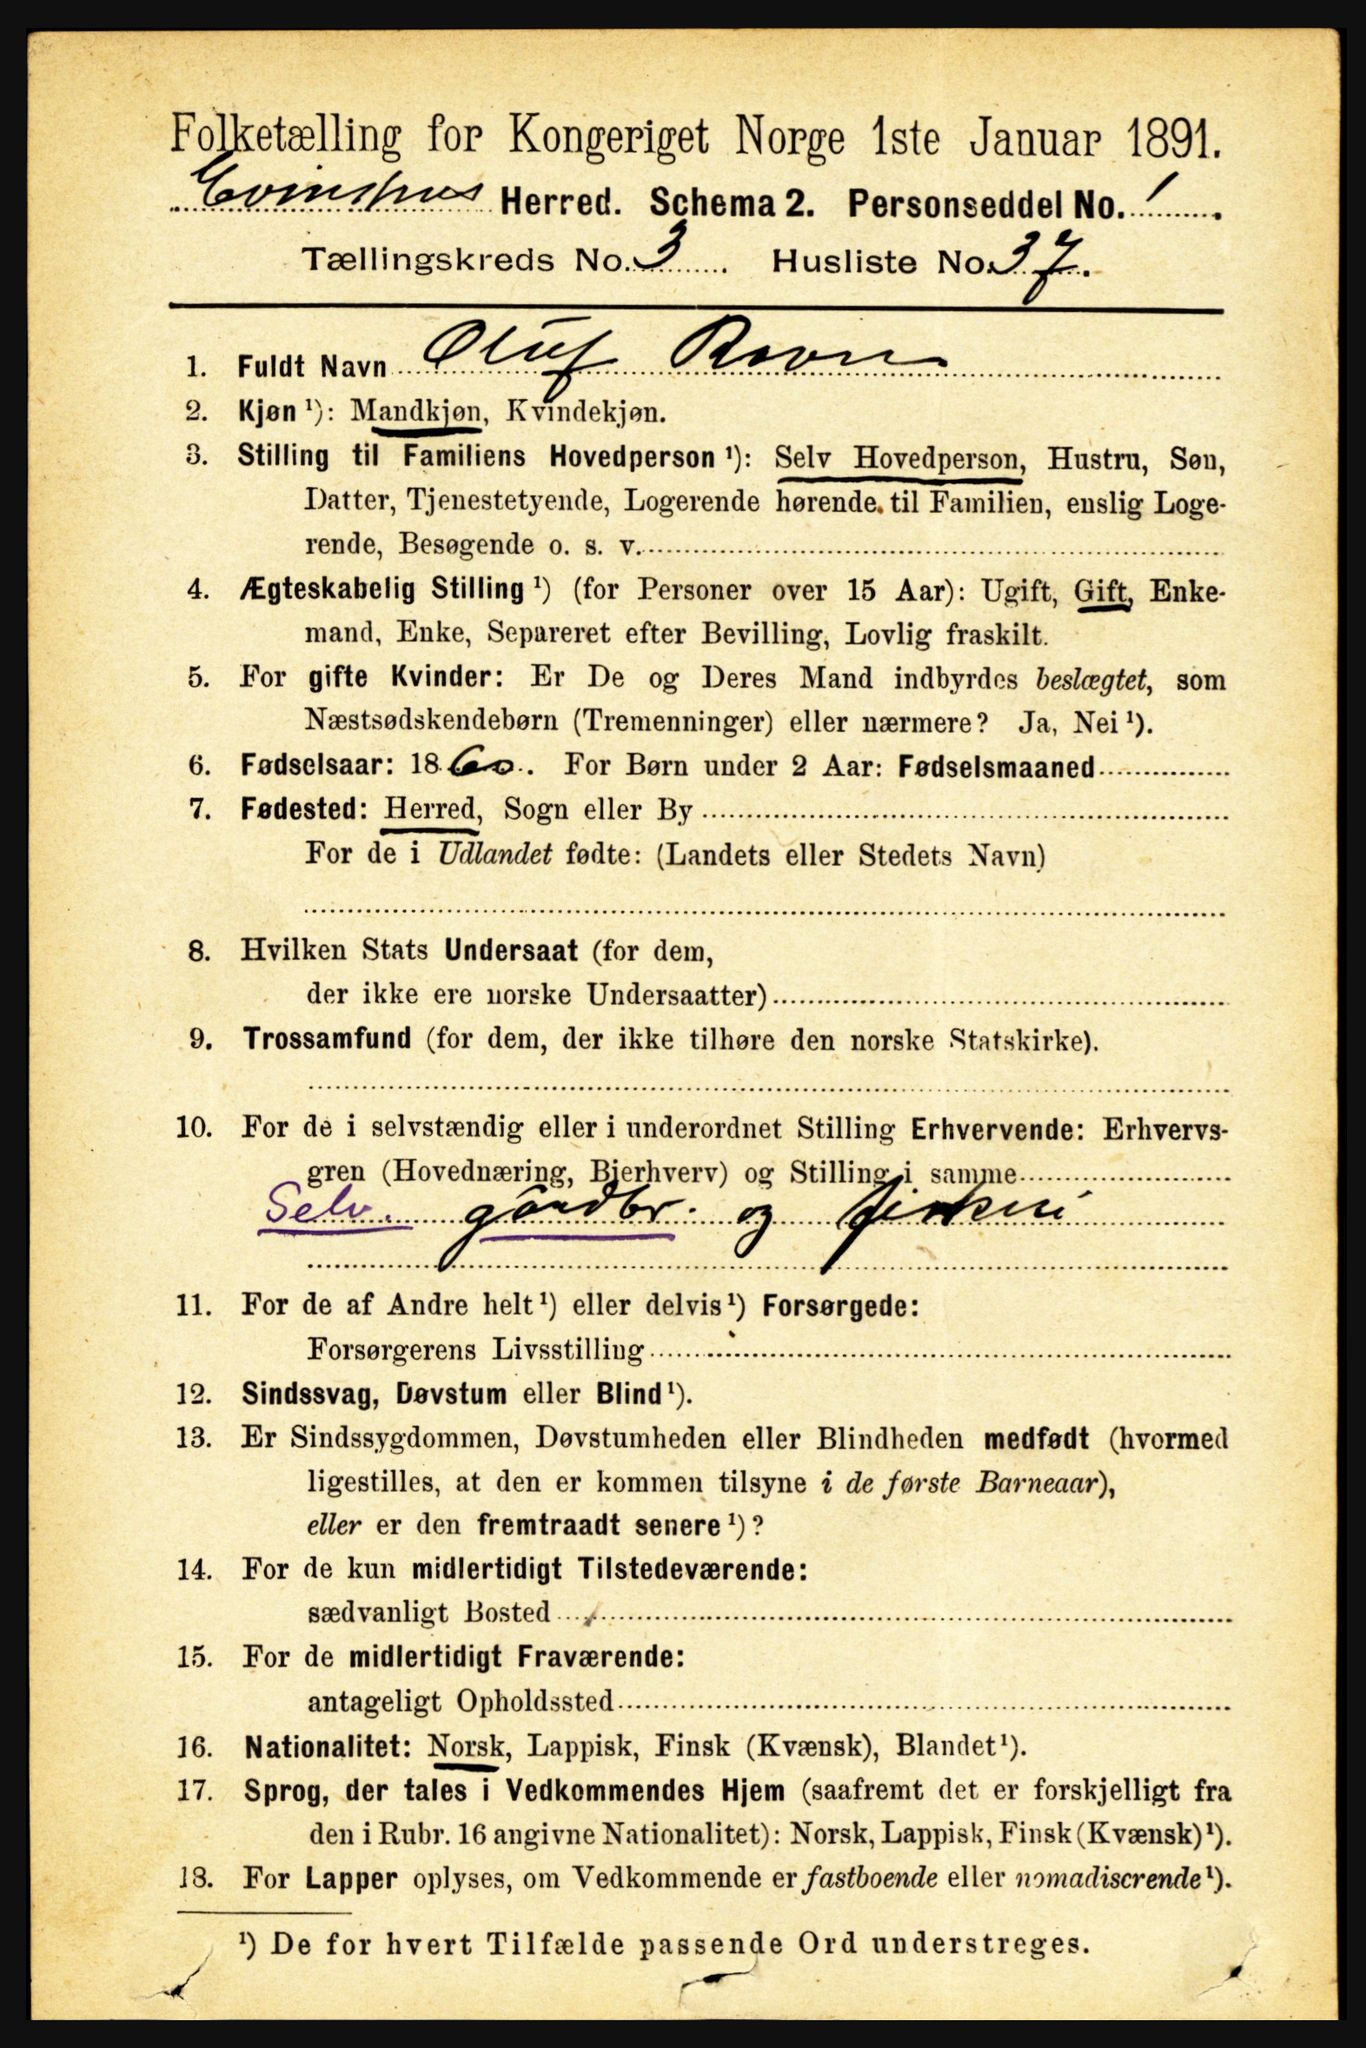 Folketælling for Kongeriget Norge 1ste Januar 1891.
Evindvig Herred. Schema 2. Personseddel No. 1.
Tællingskreds No. 3. Husliste No. 37.
1. Fuldt Navn Oluf Ravn
2. Kjøn ¹): Mandkjøn, Kvindekjøn.
3. Stilling til Familiens Hovedperson ¹): Selv Hovedperson, Hustru, Søn,
Datter, Tjenestetyende, Logerende hørende til Familien, enslig Loge-
rende, Besøgende o. s. v.
4. Ægteskabelig Stilling ¹) (for Personer over 15 Aar): Ugift, Gift, Enke-
mand, Enke, Separeret efter Bevilling, Lovlig fraskilt.
5. For gifte Kvinder: Er De og Deres Mand indbyrdes beslægtet, som
Næstsødskendebørn (Tremenninger) eller nærmere? Ja, Nei ¹).
6. Fødselsaar: 1860. For Børn under 2 Aar: Fødselsmaaned
7. Fødested: Herred, Sogn eller By
For de i Udlandet fødte: (Landets eller Stedets Navn)
8. Hvilken Stats Undersaat (for dem,
der ikke ere norske Undersaatter)
9. Trossamfund (for dem, der ikke tilhøre den norske Statskirke).
10. For de i selvstændig eller i underordnet Stilling Erhvervende: Erhvervs-
gren (Hovednæring, Bierhverv) og Stilling i samme
Selv. gaardbr. og fiskeri
11. For de af Andre helt ¹) eller delvis ¹) Forsørgede:
Forsørgerens Livsstilling
12. Sindssvag, Døvstum eller Blind ¹).
13. Er Sindssygdommen, Døvstumheden eller Blindheden medfødt (hvormed
ligestilles, at den er kommen tilsyne i de første Barneaar),
eller er den fremtraadt senere ¹)?
14. For de kun midlertidigt Tilstedeværende:
sædvanligt Bosted
15. For de midlertidigt Fraværende:
antageligt Opholdssted
16. Nationalitet: Norsk, Lappisk, Finsk (Kvænsk), Blandet ¹).
17. Sprog, der tales i Vedkommendes Hjem (saafremt det er forskjelligt fra
den i Rubr. 16 angivne Nationalitet): Norsk, Lappisk, Finsk (Kvænsk) ¹).
18. For Lapper oplyses, om Vedkommende er fastboende eller nomadiserende ¹).
¹) De for hvert Tilfælde passende Ord understreges.